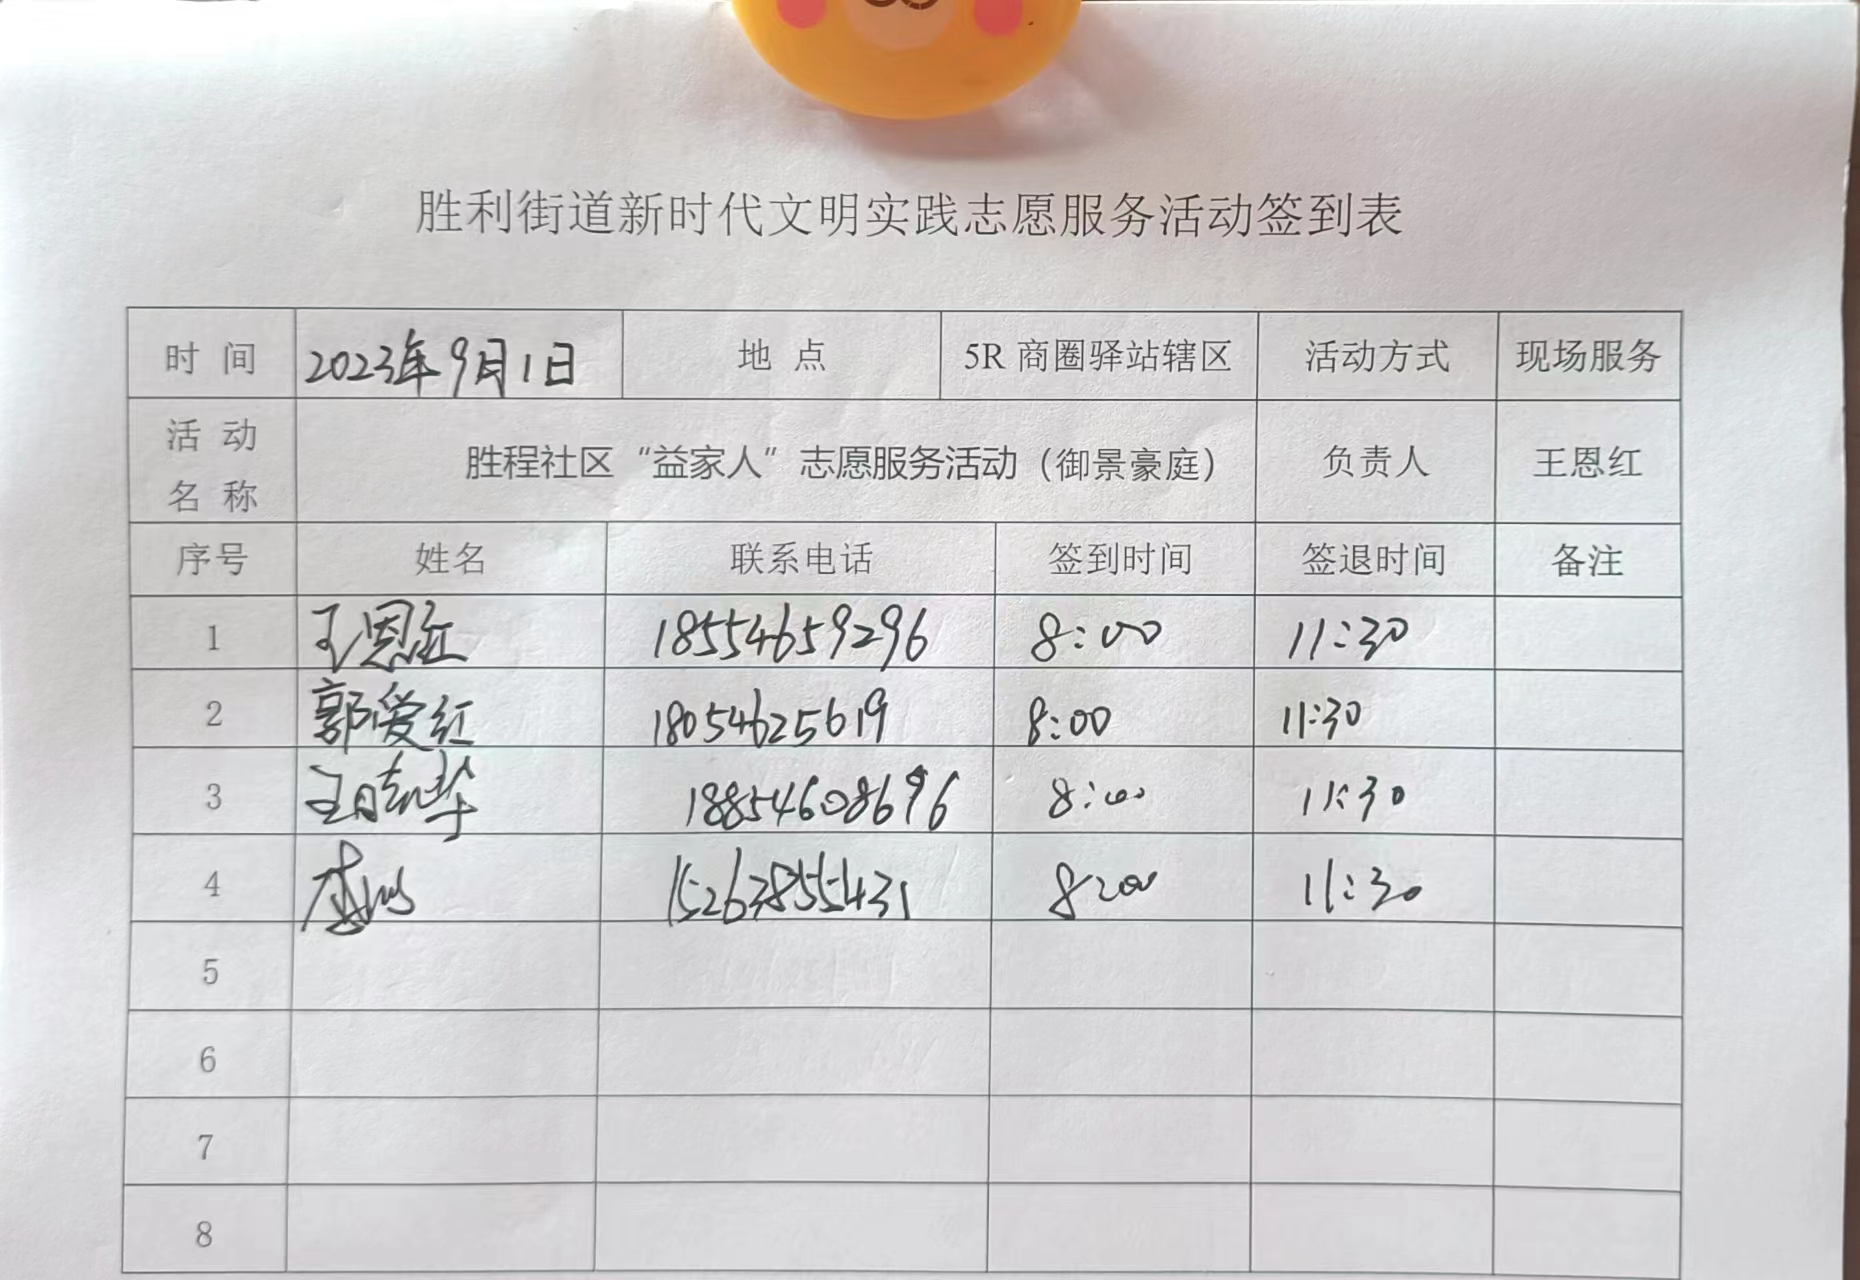 胜利街道新时代文明实践志愿服务活动签到表
时 间 2023年9月1日 地 点 5R 商圈驿站辖区 活动方式 现场服务
活 动
名 称 胜程社区“益家人”志愿服务活动（御景豪庭） 负责人 王恩红
序号 姓名 联系电话 签到时间 签退时间 备注
1 王恩红 18554659296 8:00 11:30
2 郭爱红 18054625619 8:00 11:30
3 18854608696 8:00 11:30
4 15263855431 8:00 11:30
5
6
7
8